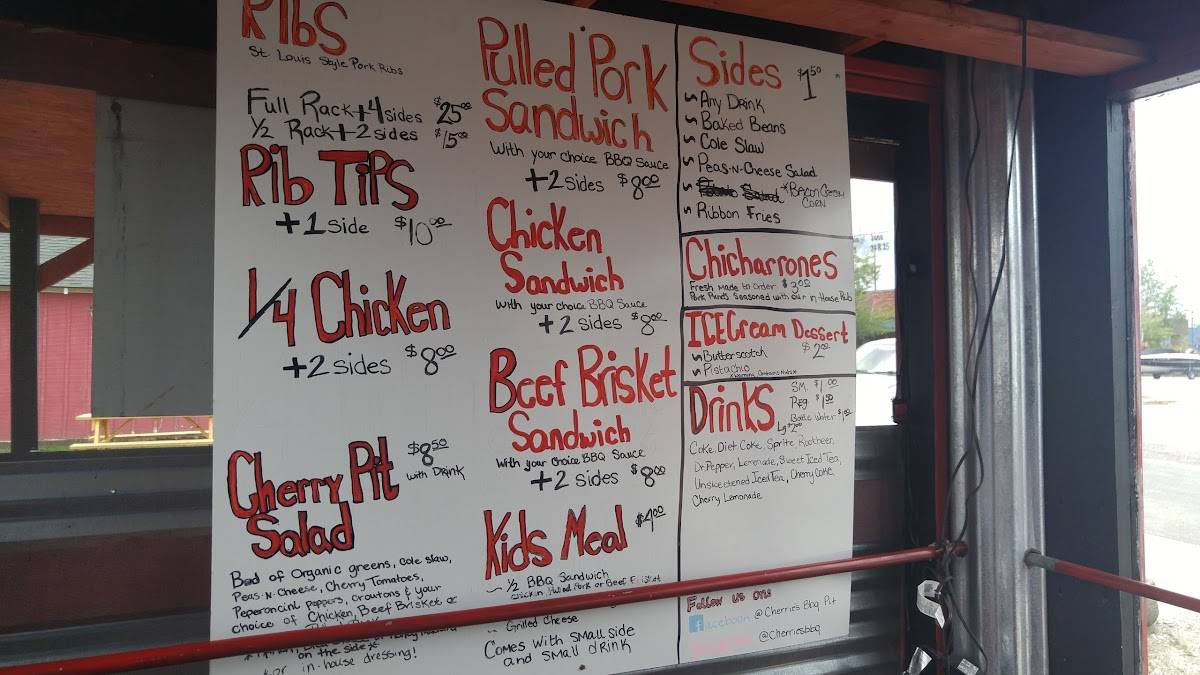 Ribs
St. Louis Style Pork Ribs
Full Rack + 4 sides $25.00
1/2 Rack + 2 sides $15.00
Rib Tips
+1 side $10.00
1/4 Chicken
+2 sides $8.00
Cherry Pit
Salad
$8.50
with Drink
Bed of Organic greens, Cole slaw,
Peas-N-Cheese, Cherry Tomatoes,
Peperoncini peppers, croutons & your
choice of Chicken, Beef Brisket or
on the side
or in-house dressing!
Pulled Pork
Sandwich
With your choice BBQ Sauce
+2 sides $8.00
Chicken
Sandwich
with your choice BBQ Sauce
+2 sides $8.00
Beef Brisket
Sandwich
with your choice BBQ Sauce
+2 sides $8.00
Kids Meal $4.00
~ 1/2 BBQ Sandwich
Chicken, Pulled Pork or Beef
~ Grilled Cheese
Comes with small side
and small drink
Sides $1.50
~ Any Drink
~ Baked Beans
~ Cole Slaw
~ Peas-N-Cheese Salad
~ *Bacon Cream
Corn
~ Ribbon Fries
Chicharrones
Fresh Made to Order $3.00
Pork Rinds Seasoned with our in House Rub
ICE Cream Dessert
~ Butterscotch $2.00
~ Pistachio
*Warning Contains Nuts*
Drinks
SM. $1.00
Reg. $1.50
Bottle Water $1.00
Lg $2.00
Coke, Diet Coke, Sprite, Rootbeer,
Dr. Pepper, Lemonade, Sweet Iced Tea,
Unsweetened Iced Tea, Cherry Coke,
Cherry Lemonade
Follow us on:
facebook @Cherries Bbq Pit
@Cherriesbbq